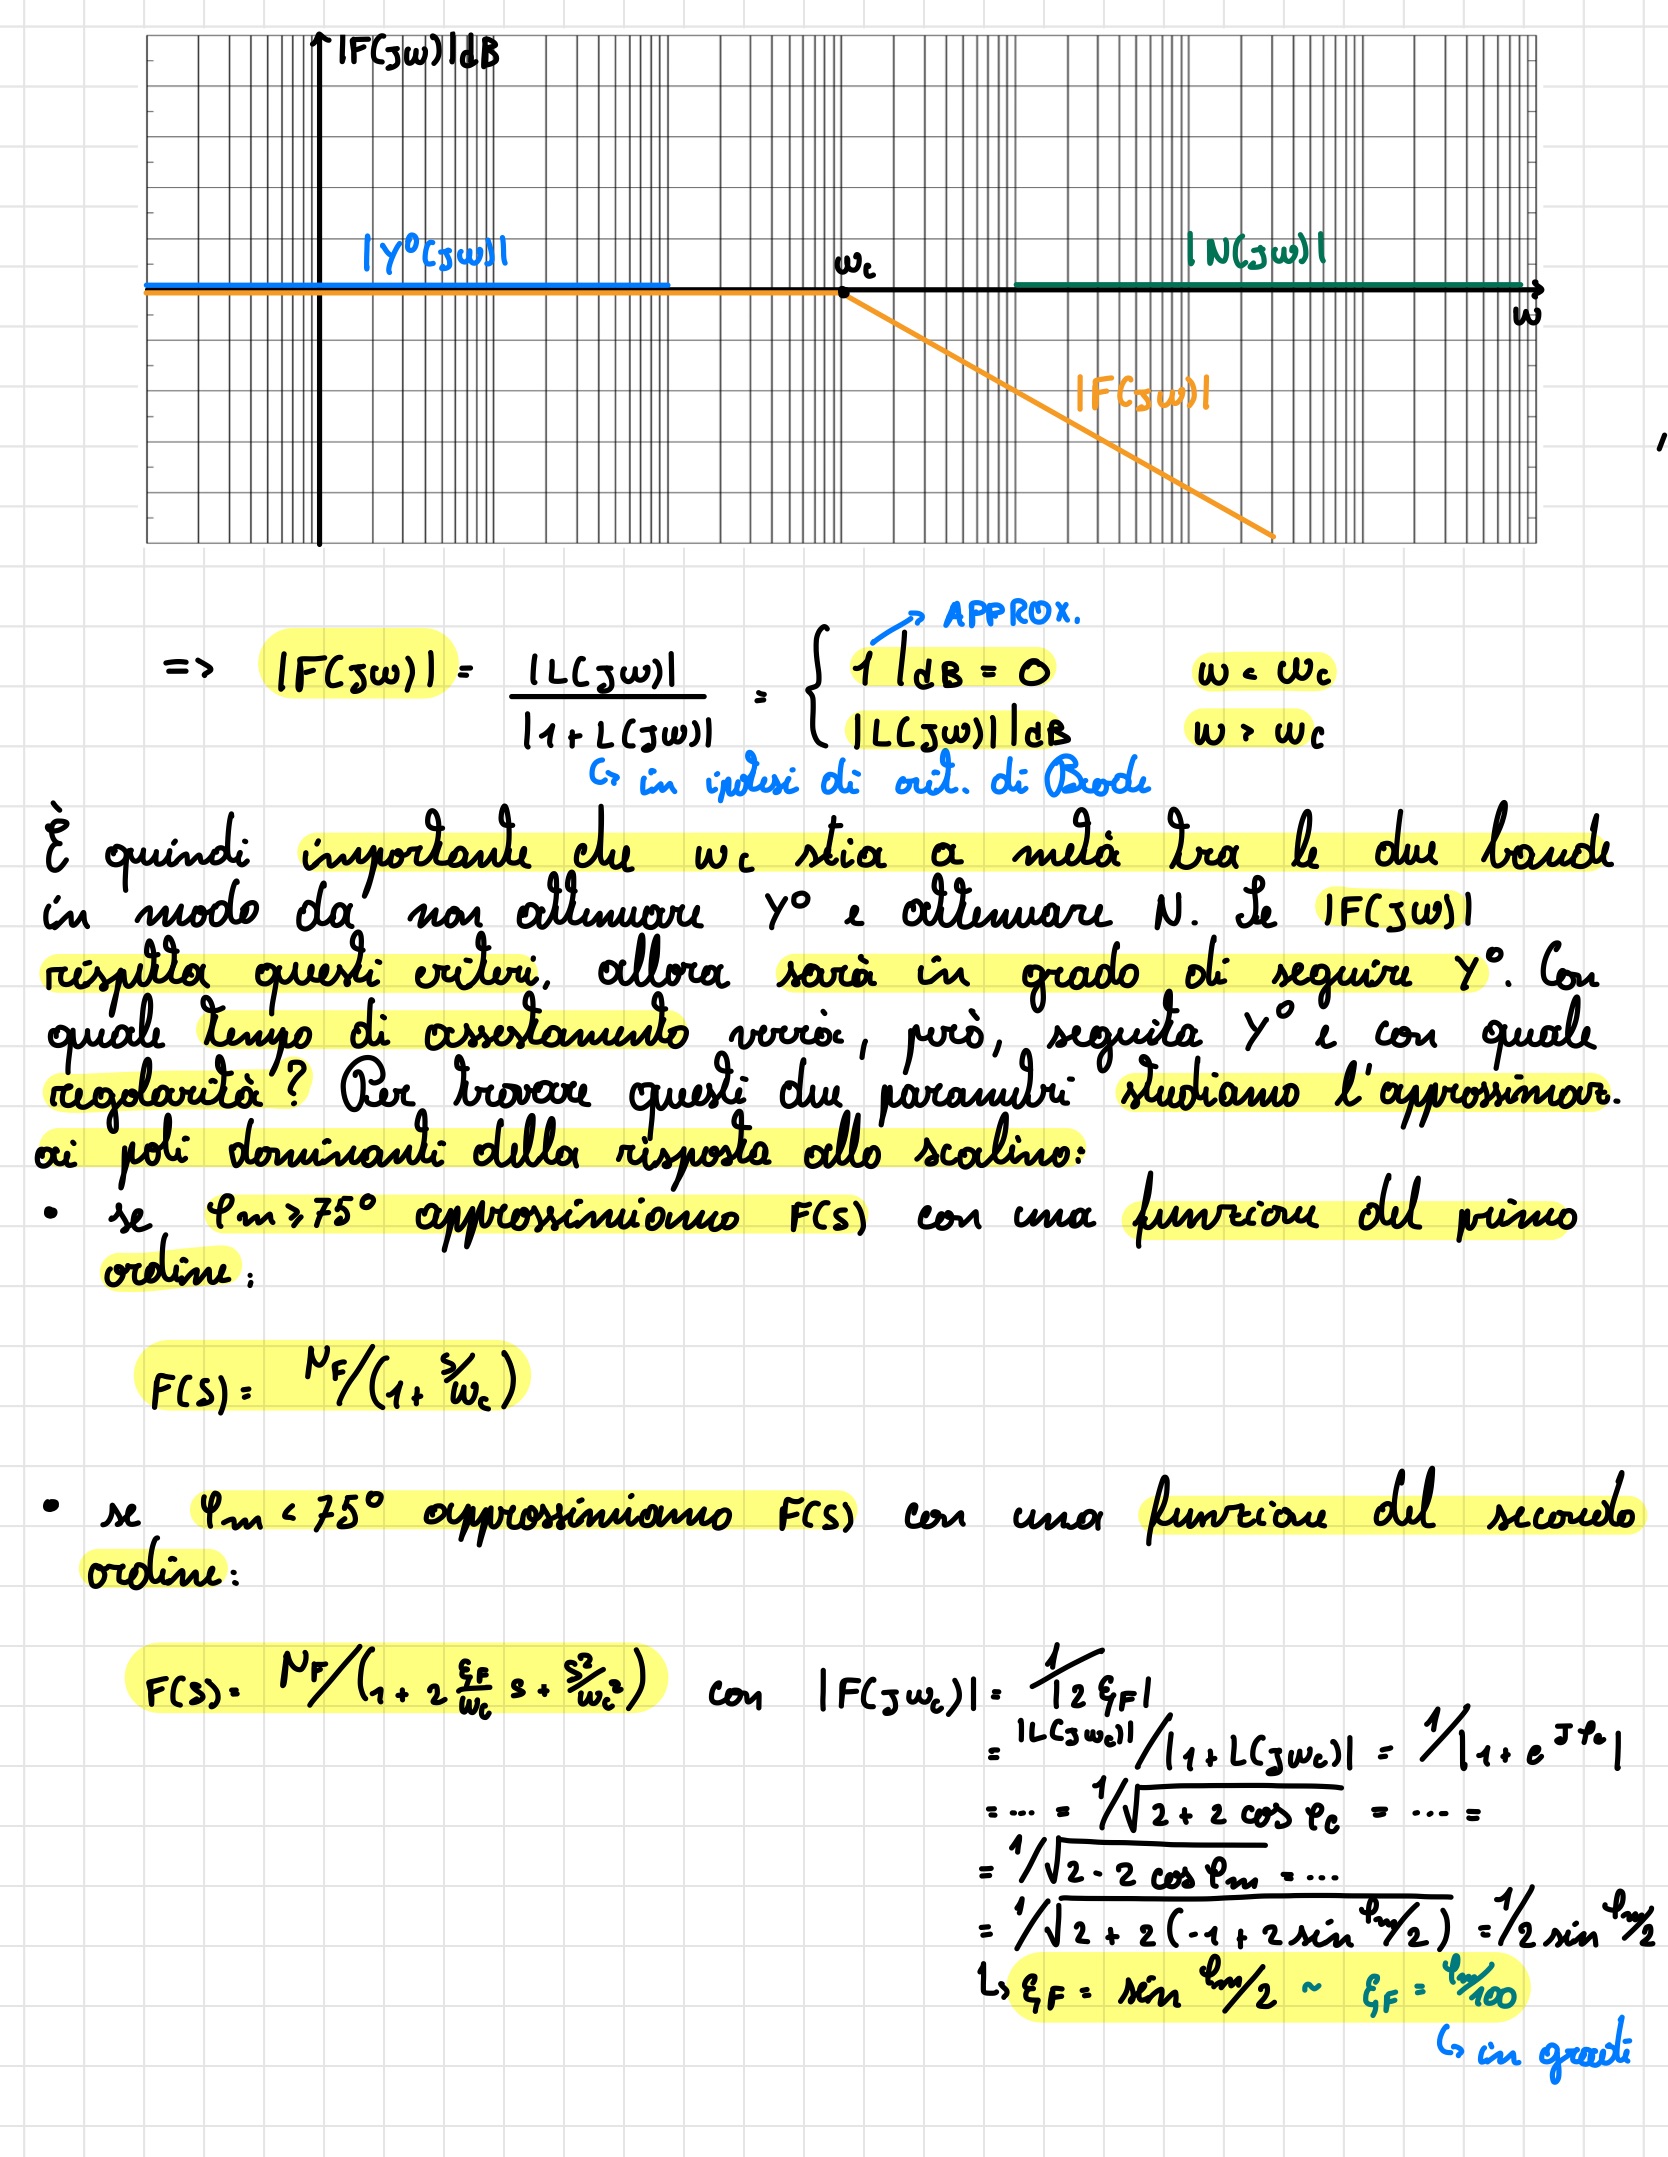 |F(jω)|dB
|Y°(jω)|
ωc
|N(jω)|
ω
|F(jω)|
→ APPROX.
=> |F(jω)| = |L(jω)| / |1 + L(jω)| = { 1|dB = 0 ω < ωc
|L(jω)||dB ω > ωc
↳ in ipotesi di crit. di Bode
È quindi importante che ωc stia a metà tra le due bande
in modo da non attenuare Y° e attenuare N. Se |F(jω)|
rispetta questi criteri, allora sarà in grado di seguire Y°. Con
quale tempo di assestamento verrà, però, seguita Y° e con quale
regolarità? Per trovare questi due parametri studiamo l'approssimaz.
ai poli dominanti della risposta allo scalino:
• se φm ≥ 75° approssimiamo F(s) con una funzione del primo
ordine:
F(s) = μF/(1 + s/ωc)
• se φm < 75° approssimiamo F(s) con una funzione del secondo
ordine:
F(s) = μF/(1 + 2 ξF/ωc s + s²/ωc²) con |F(jωc)| = 1/|2 ξF|
= |L(jωc)|/|1 + L(jωc)| = 1/|1 + e^jφc|
= ... = 1/√(2 + 2 cos φc) = ... =
= 1/√(2 - 2 cos φm) = ...
= 1/√(2 + 2(-1 + 2 sin φm/2)) = 1/2 sin φm/2
↳ ξF = sin φm/2 ~ ξF = φm/100
↳ in gradi